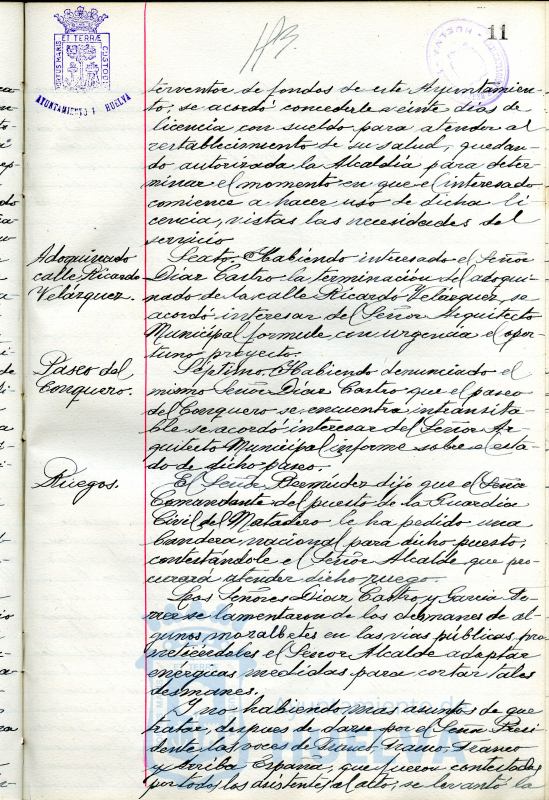 11
PORTUS MARIS ET TERRÆ CUSTODIA
AYUNTAMIENTO HUELVA
terventor de fondos de este Ayuntamien-
to, se acordó concederle veinte días de
licencia con sueldo para atender al
restablecimiento de su salud, quedan-
do autorizada la Alcaldía para deter-
minar el momento en que el interesado
comience a hacer uso de dicha li
cencia, vistas las necesidades del
servicio
Adoquinado
calle Ricardo
Velázquez.
Sexto. Habiendo interesado el Señor
Díaz Castro la terminación del adoqui-
nado de la calle Ricardo Velázquez, se
acordó interesar del Señor Arquitecto
Municipal formule con urgencia el opor-
tuno proyecto.
Paseo del
Conquero.
Séptimo. Habiendo denunciado el
mismo Señor Díaz Castro que el paseo
del Conquero se encuentra intransita-
ble se acordó interesar del Señor Ar-
quitecto Municipal informe sobre el esta-
do de dicho paseo.
Ruegos.
El Señor Bermudez dijo que el Señor
Comandante del puesto de la Guardia
Civil del Matadero le ha pedido una
bandera nacional para dicho puesto,
contestándole el Señor Alcalde que pro-
curará atender dicho ruego.
Los Señores Díaz Castro y García
se lamentaron de los desmanes de al-
gunos mozalbetes en las vías públicas, pro
metiéndoles el Señor Alcalde adoptar
enérgicas medidas para cortar tales
desmanes.
Y no habiendo mas asuntos de que
tratar, despues de darse por el Señor Presi
dente las voces de Franco, Franco, Franco
y Arriba España, que fueron contestadas
por todos los asistentes al acto, se levantó la
HUELVA